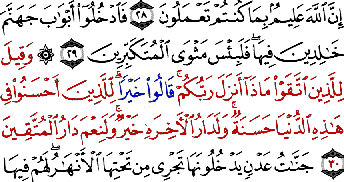 إِنَّ ٱللَّهَ عَلِيمٌۢ بِمَا كُنتُمْ تَعْمَلُونَ ٢٨ فَٱدْخُلُوٓا۟ أَبْوَٰبَ جَهَنَّمَ
خَٰلِدِينَ فِيهَا ۖ فَلَبِئْسَ مَثْوَى ٱلْمُتَكَبِّرِينَ ٢٩ ۞ وَقِيلَ
لِلَّذِينَ ٱتَّقَوْا۟ مَاذَآ أَنزَلَ رَبُّكُمْ ۚ قَالُوا۟ خَيْرًا ۗ لِّلَّذِينَ أَحْسَنُوا۟ فِى
هَٰذِهِ ٱلدُّنْيَا حَسَنَةٌ ۚ وَلَدَارُ ٱلْءَاخِرَةِ خَيْرٌ ۚ وَلَنِعْمَ دَارُ ٱلْمُتَّقِينَ
٣٠ جَنَّٰتُ عَدْنٍ يَدْخُلُونَهَا تَجْرِى مِن تَحْتِهَا ٱلْأَنْهَٰرُ ۖ لَهُمْ فِيهَا